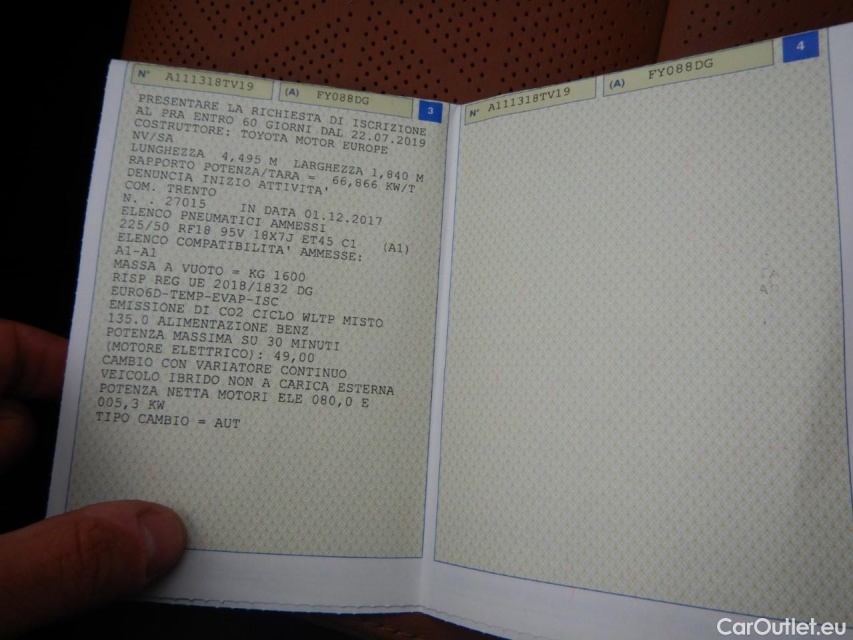 N° A111318TV19 (A) FY088DG 3
PRESENTARE LA RICHIESTA DI ISCRIZIONE
AL PRA ENTRO 60 GIORNI DAL 22.07.2019
COSTRUTTORE: TOYOTA MOTOR EUROPE
NV/SA
LUNGHEZZA 4,495 M LARGHEZZA 1,840 M
RAPPORTO POTENZA/TARA = 66,866 KW/T
DENUNCIA INIZIO ATTIVITA'
COM. TRENTO
N. . 27015 IN DATA 01.12.2017
ELENCO PNEUMATICI AMMESSI
225/50 RF18 95V 18X7J ET45 C1 (A1)
ELENCO COMPATIBILITA' AMMESSE:
A1-A1
MASSA A VUOTO = KG 1600
RISP REG UE 2018/1832 DG
EURO6D-TEMP-EVAP-ISC
EMISSIONE DI CO2 CICLO WLTP MISTO
135.0 ALIMENTAZIONE BENZ
POTENZA MASSIMA SU 30 MINUTI
(MOTORE ELETTRICO): 49,00
CAMBIO CON VARIATORE CONTINUO
VEICOLO IBRIDO NON A CARICA ESTERNA
POTENZA NETTA MOTORI ELE 080,0 E
005,3 KW
TIPO CAMBIO = AUT
N° A111318TV19 (A) FY088DG 4
CarOutlet.eu